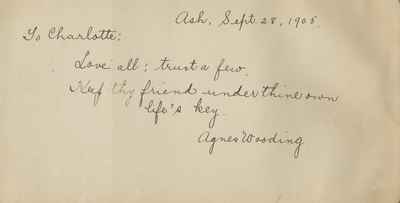 Ash, Sept 28, 1905.
To Charlotte:
Love all; trust a few.
Keep thy friend under thine own
life's key.
Agnes Wooding